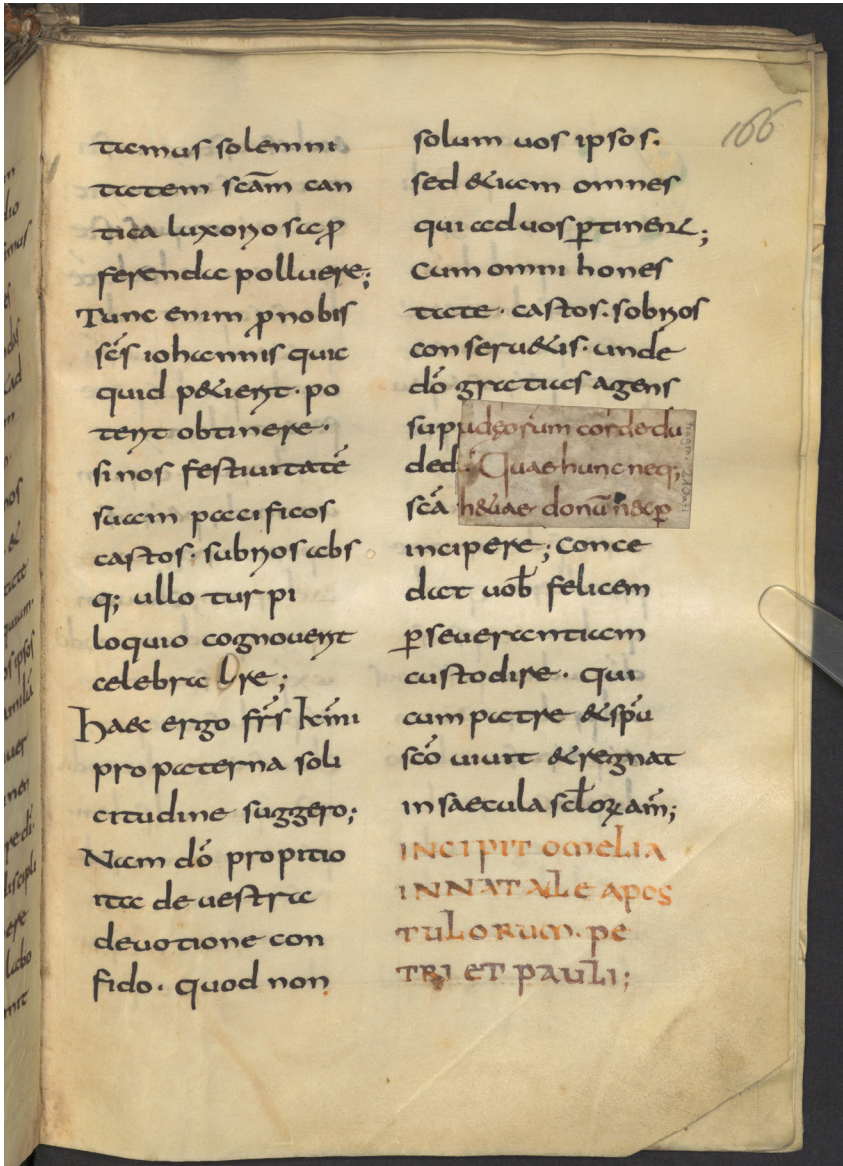 166
tamus solemni
tatem scām can
tica luxoriosa ꝓ
ferenda polluere;
Tunc enim ꝓ nobis
scs̄ iohannis quic
quid petierit· po
terit obtinere·
si nos festiuitatē
suam pacificos
castos· subrios abs
q; ullo turpi
loquio cognouerit
celebrare;
Haec ergo frs̄ kmi
pro paterna soli
citudine suggero;
Nam dō propitio
ita de uestra
deuotione con
fido· quod non
solum uos ipsos·
sed etiam omnes
qui ad uos ꝑtinent;
Cum omni hones
tate· castos· sobrios
conseruetis· unde
dō gratias agens
sup
ded
scā
udeorum corde du
Quae hunc neq;
donū
incipere; Conce
dat uob felicem
ꝑseuerantiam
custodire· qui
cum patre & spū
scō uiuit & regnat
in saecula scloꝝ am̄;
INCIPIT OMELIA
IN NATALE APOS
TULORUM· PE
TRI ET PAULI;